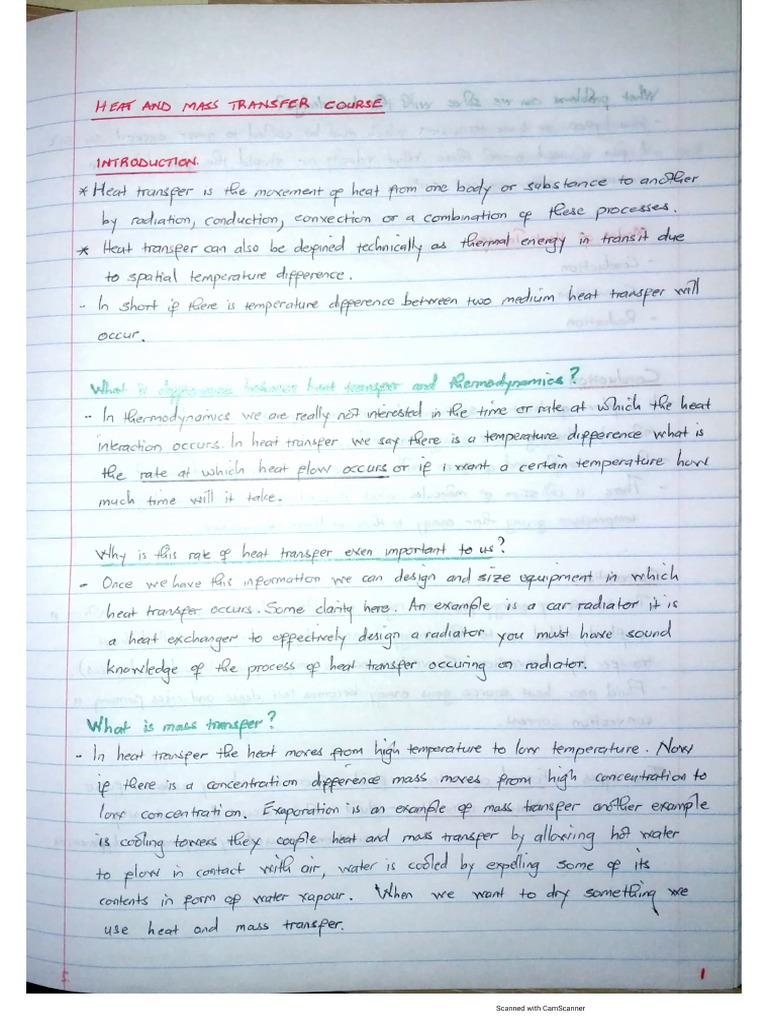 HEAT AND MASS TRANSFER COURSE
INTRODUCTION.
* Heat transfer is the movement of heat from one body or substance to another
by radiation, conduction, convection or a combination of these processes.
* Heat transfer can also be defined technically as thermal energy in transit due
to spatial temperature difference.
- In short if there is temperature difference between two medium heat transfer will
occur.
What is difference between heat transfer and thermodynamics?
- In thermodynamics we are really not interested in the time or rate at which the heat
interaction occurs. In heat transfer we say there is a temperature difference what is
the rate at which heat flow occurs or if i want a certain temperature how
much time will it take.
Why is this rate of heat transfer even important to us?
- Once we have this information we can design and size equipment in which
heat transfer occurs. Some clarity here. An example is a car radiator it is
a heat exchanger to effectively design a radiator you must have sound
knowledge of the process of heat transfer occuring on radiator.
What is mass transfer?
- In heat transfer the heat moves from high temperature to low temperature. Now
if there is a concentration difference mass moves from high concentration to
low concentration. Evaporation is an example of mass transfer another example
is cooling towers they couple heat and mass transfer by allowing hot water
to flow in contact with air, water is cooled by expelling some of its
contents in form of water vapour. When we want to dry something we
use heat and mass transfer.
1
Scanned with CamScanner